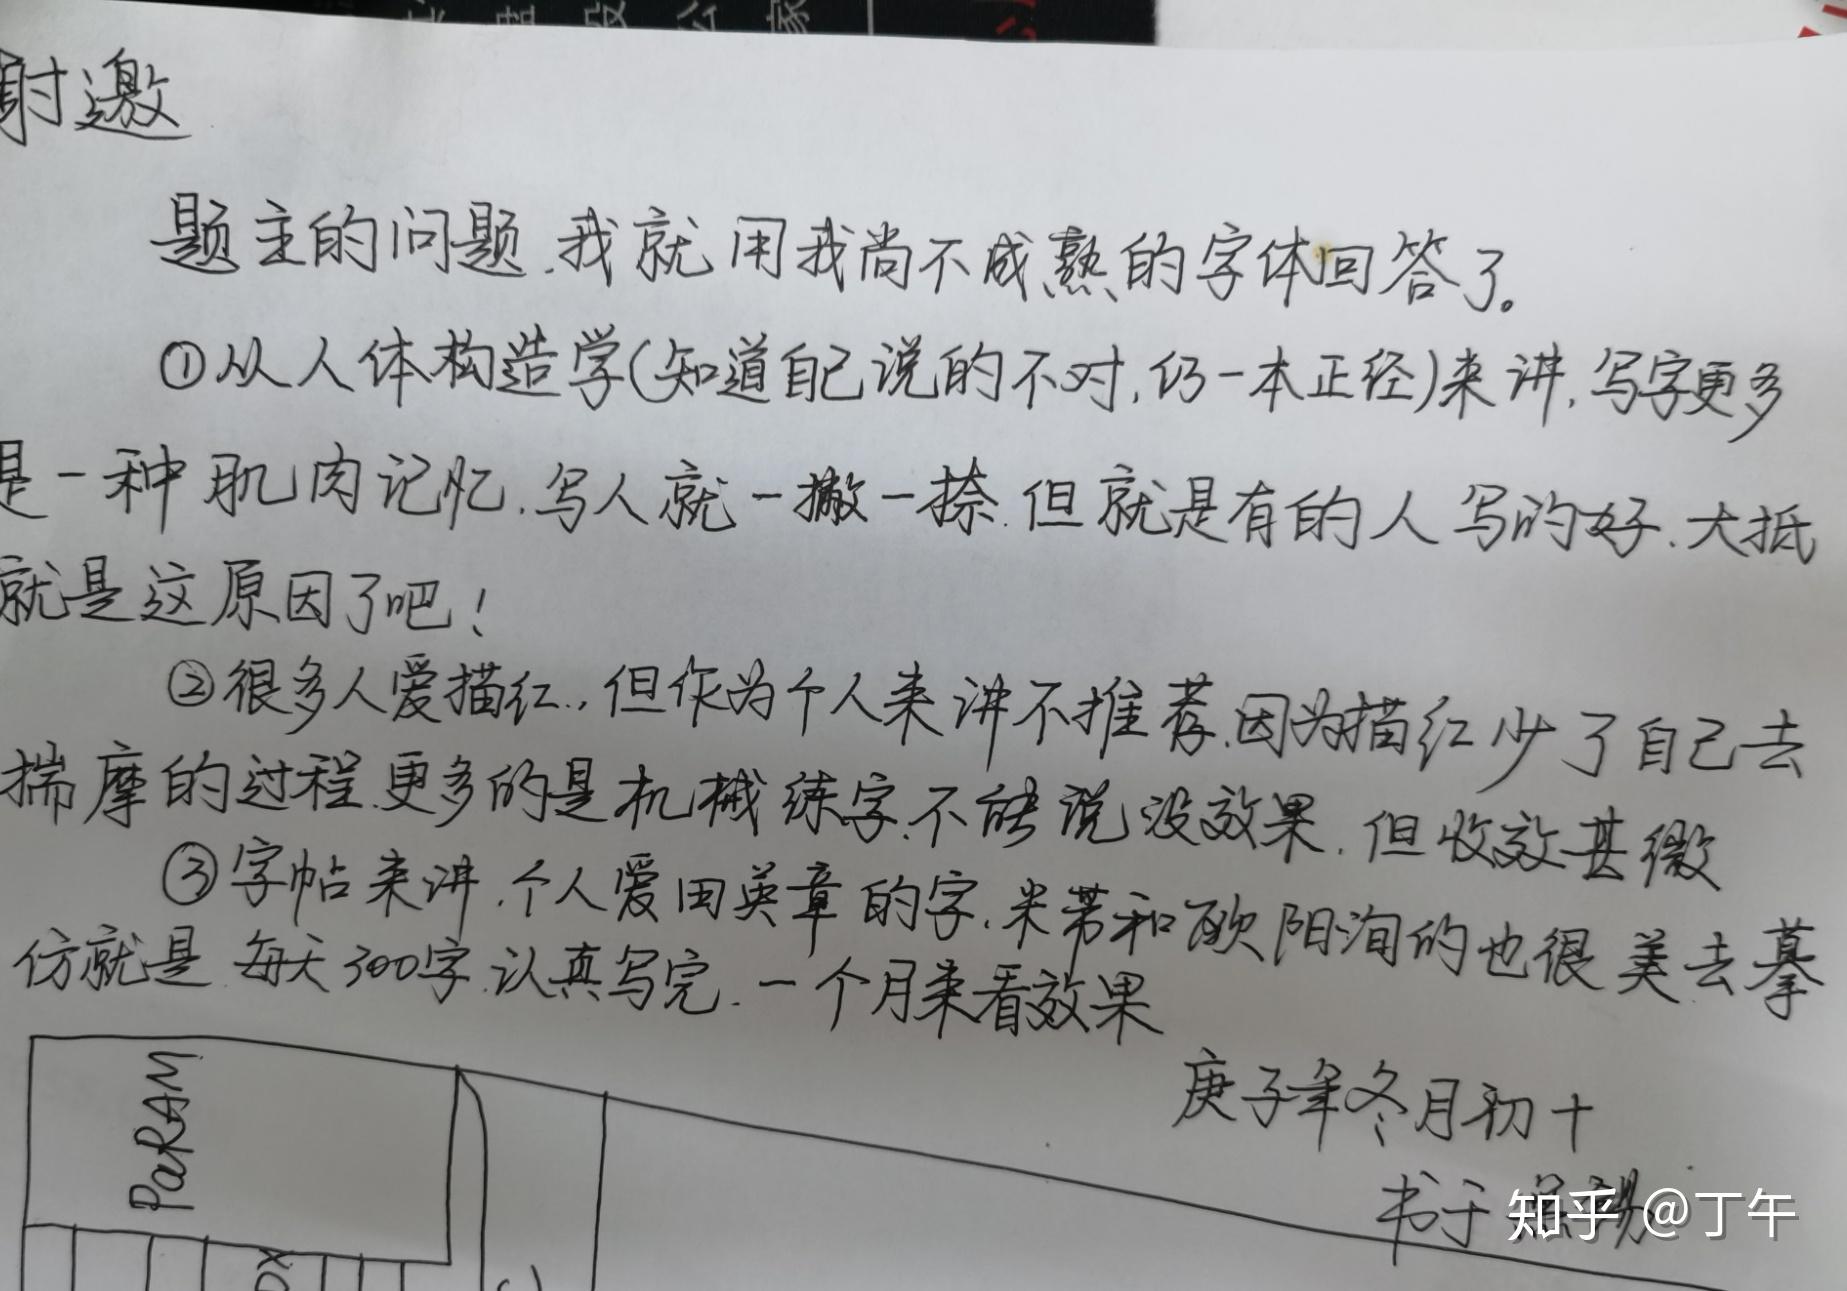 谢邀
题主的问题,我就用我尚不成熟的字体回答了。
①从人体构造学(知道自己说的不对,仍一本正经)来讲,写字更多
是一种肌肉记忆,写人就一撇一捺,但就是有的人写的好,大抵
就是这原因了吧!
②很多人爱描红.,但作为个人来讲不推荐,因为描红少了自己去
揣摩的过程,更多的是机械练字,不能说没效果,但收效甚微
③字帖来讲,个人爱田英章的字,米芾和欧阳洵的也很美去摹
仿就是,每天300字,认真写完,一个月来看效果
庚子年冬月初十
书于
知乎 @丁午
PaRAM